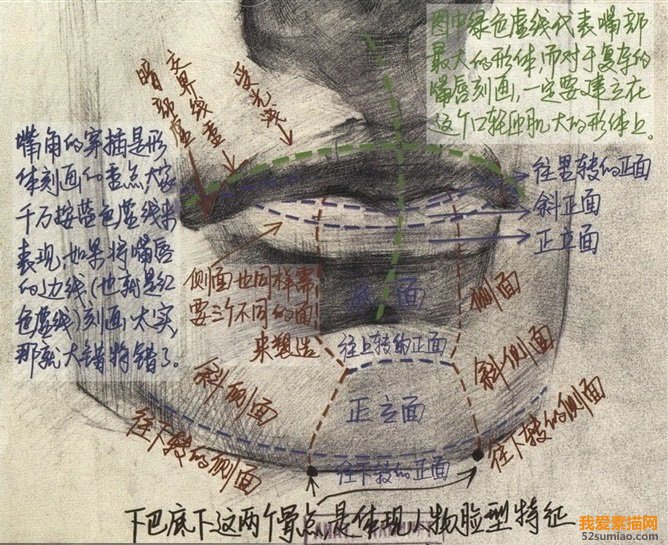 图中绿色虚线代表嘴部
最大的形体,而对于复杂的
嘴唇刻画,一定要建立在
这个口轮匝肌大的形体上。
受光浅
交界线重
暗部虚
嘴角的穿插是形
体刻画的重点大家
千万按蓝色虚线来
表现,如果将嘴唇
的边线(也就是红
色虚线)刻画太实,
那就大错特错了。
往里转的正面
斜正面
正立面
侧面也同样需
要三个不同的面
来塑造
侧面
往上转的正面
斜侧面
斜侧面
正立面
往下转的侧面
往下转的正面
往下转的侧面
下巴底下这两个骨点是体现人物脸型特征
我爱素描网
52sumiao.com